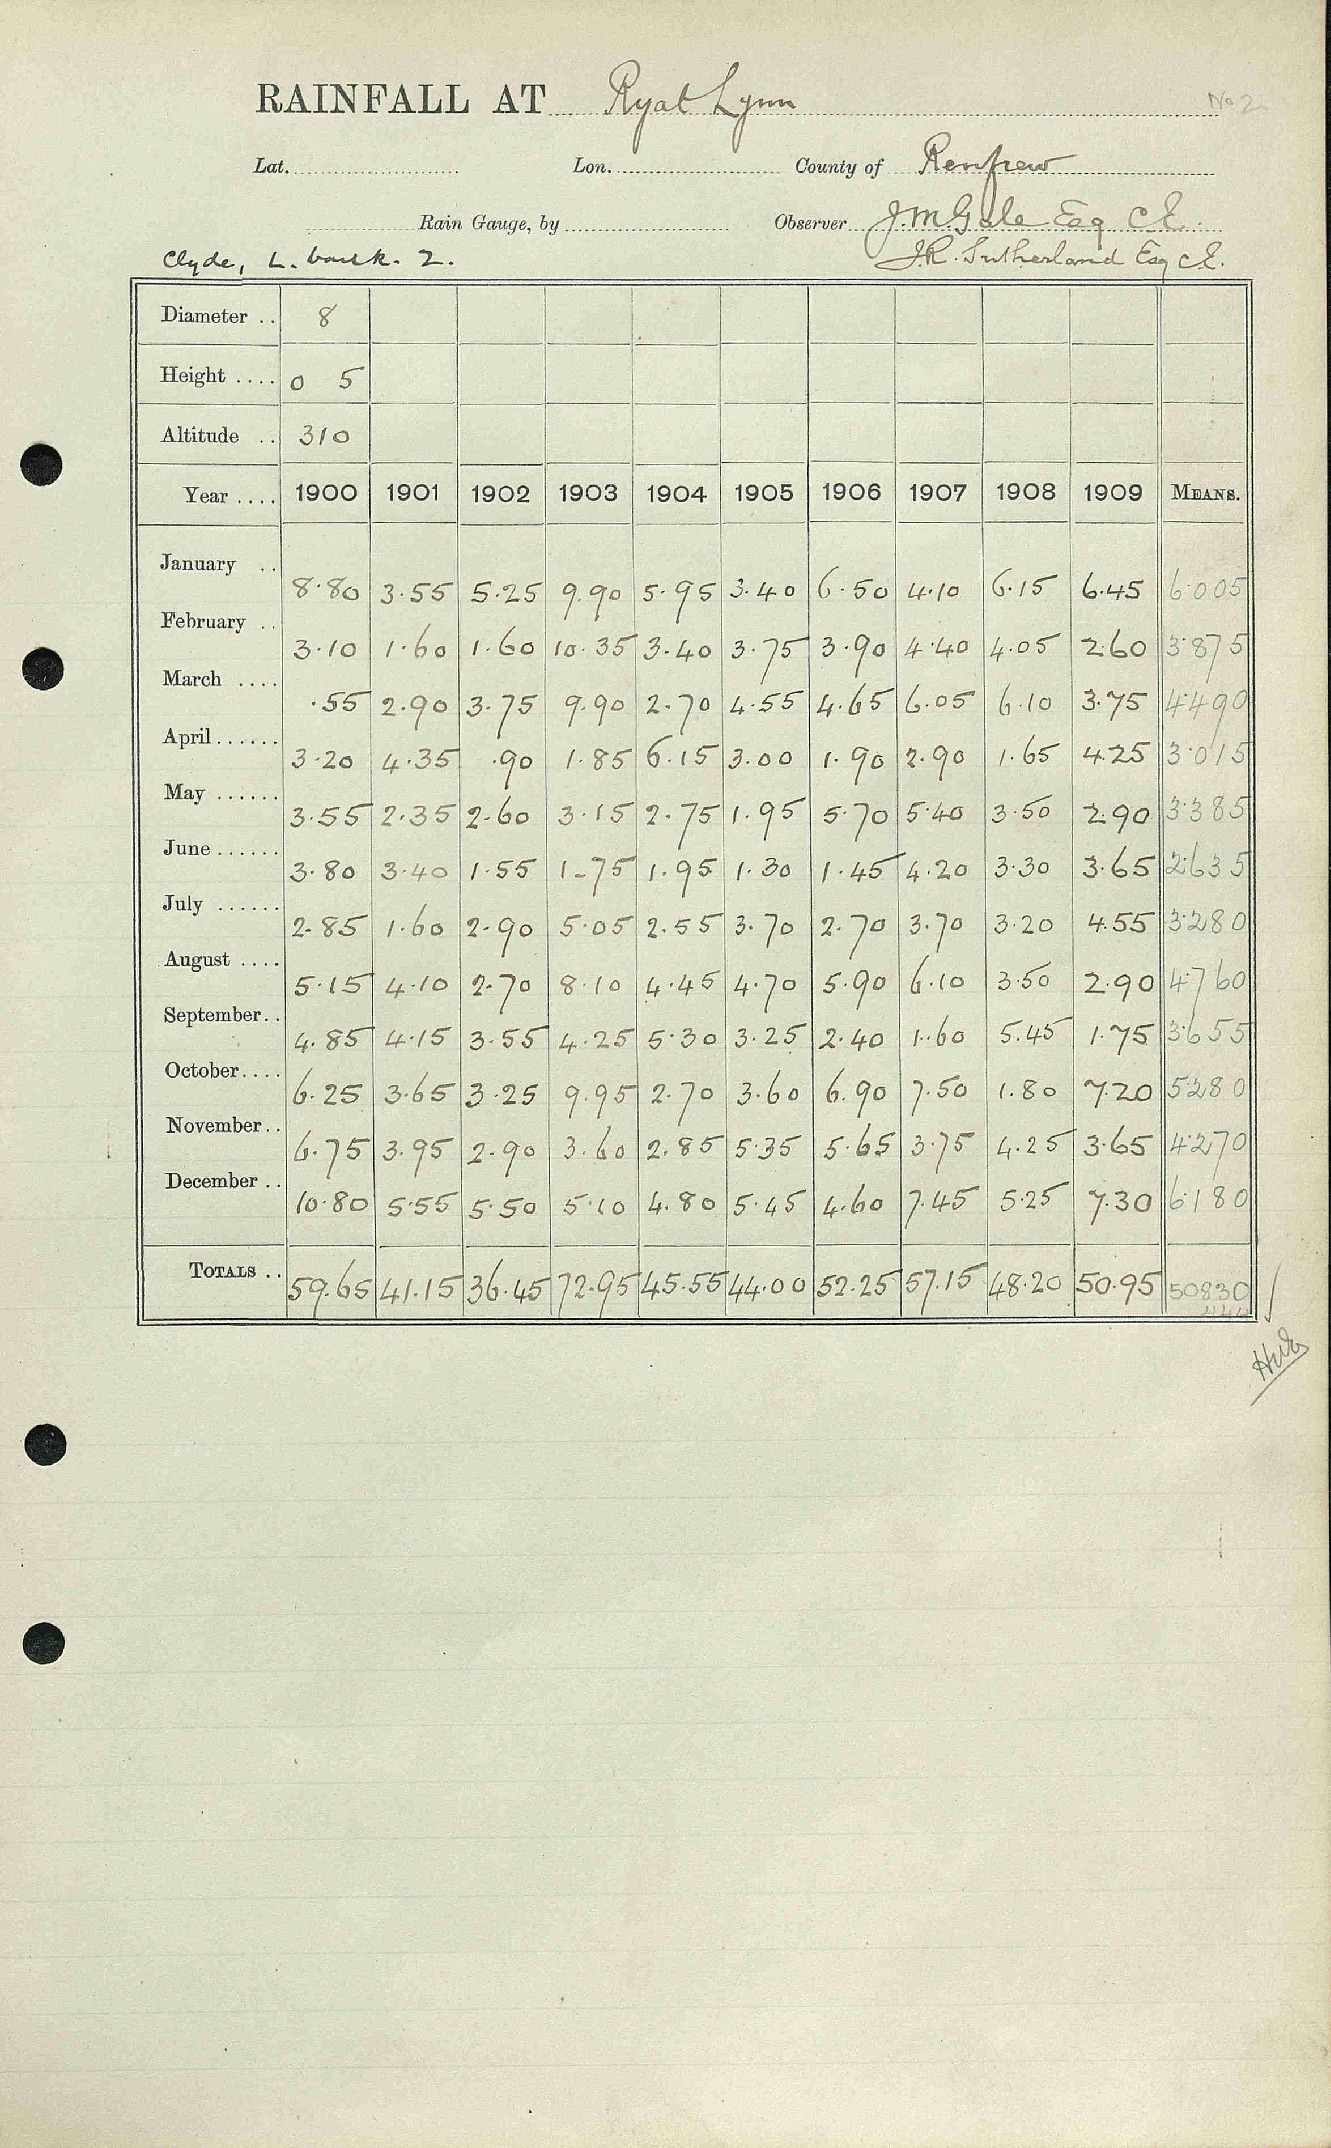 No 2
RAINFALL AT Ryat Lynn
Lat. Lon. County of Renfrew
Rain Gauge, by Observer J.M. Gale Esq C.E.
Clyde, L. bank. 2. J.R. Sutherland Esq C.E.
Diameter .. 8
Height .... 0 5
Altitude .. 310
Year .... 1900 1901 1902 1903 1904 1905 1906 1907 1908 1909 MEANS.
January .. 8.80 3.55 5.25 9.90 5.95 3.40 6.50 4.10 6.15 6.45 6.005
February .. 3.10 1.60 1.60 10.35 3.40 3.75 3.90 4.40 4.05 2.60 3.875
March .... .55 2.90 3.75 9.90 2.70 4.55 4.65 6.05 6.10 3.75 4.490
April ...... 3.20 4.35 .90 1.85 6.15 3.00 1.90 2.90 1.65 4.25 3.015
May ...... 3.55 2.35 2.60 3.15 2.75 1.95 5.70 5.40 3.50 2.90 3.385
June ...... 3.80 3.40 1.55 1.75 1.95 1.30 1.45 4.20 3.30 3.65 2.635
July ...... 2.85 1.60 2.90 5.05 2.55 3.70 2.70 3.70 3.20 4.55 3.280
August .... 5.15 4.10 2.70 8.10 4.45 4.70 5.90 6.10 3.50 2.90 4.760
September.. 4.85 4.15 3.55 4.25 5.30 3.25 2.40 1.60 5.45 1.75 3.655
October.... 6.25 3.65 3.25 9.95 2.70 3.60 6.90 7.50 1.80 7.20 5.280
November.. 6.75 3.95 2.90 3.60 2.85 5.35 5.65 3.75 4.25 3.65 4.270
December .. 10.80 5.55 5.50 5.10 4.80 5.45 4.60 7.45 5.25 7.30 6.180
TOTALS .. 59.65 41.15 36.45 72.95 45.55 44.00 52.25 57.15 48.20 50.95 50830